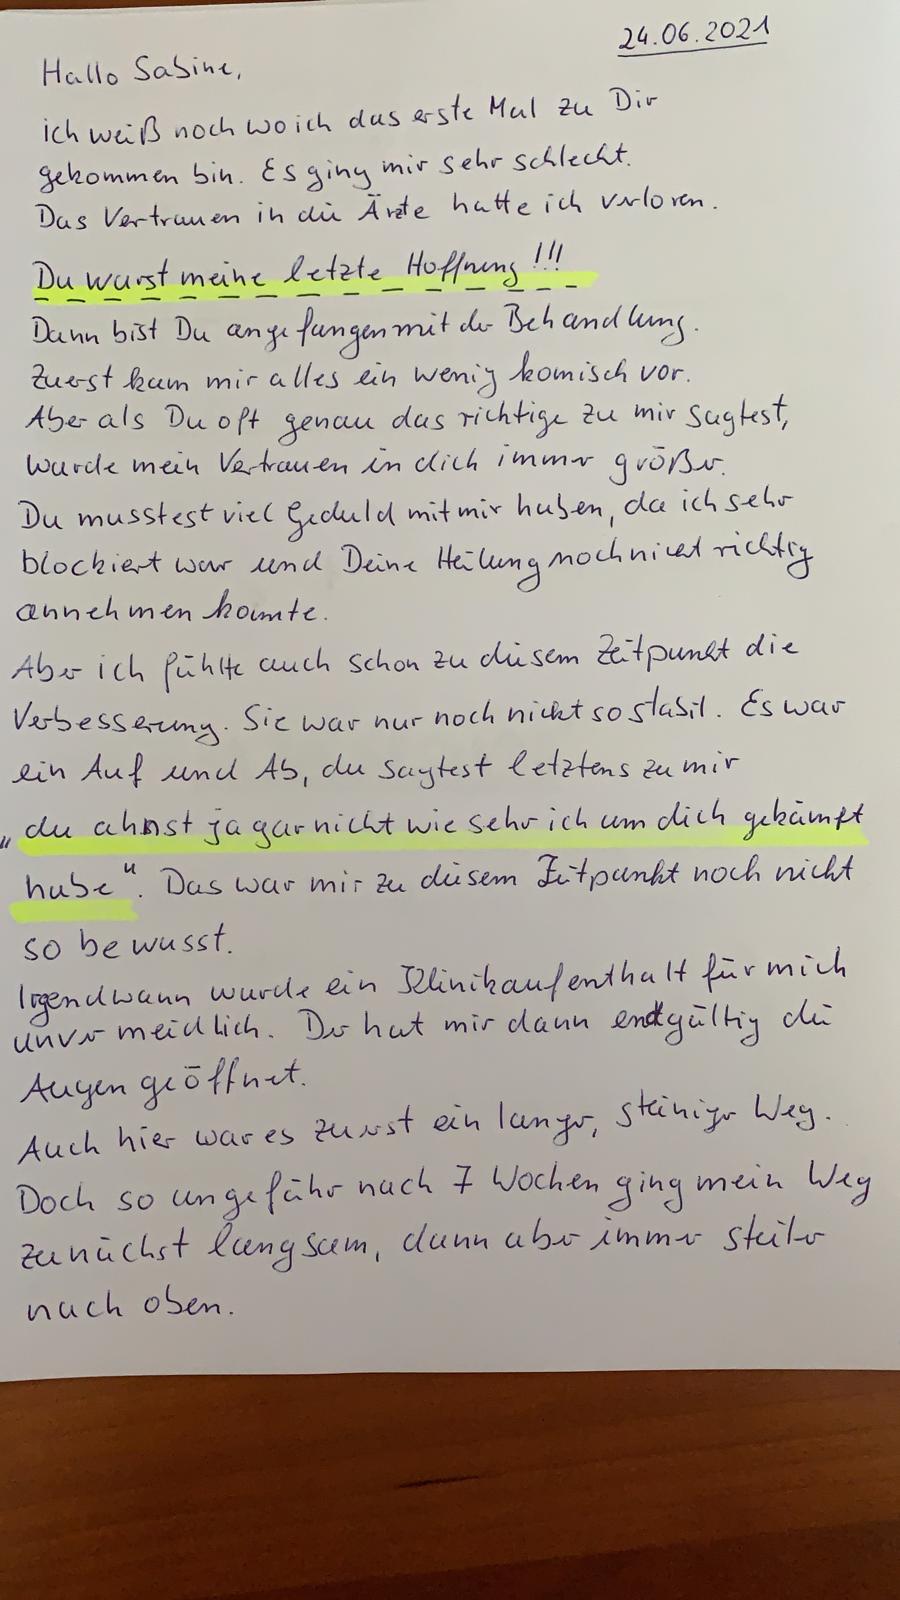 24.06.2021
Hallo Sabine,
ich weiß noch wo ich das erste Mal zu Dir
gekommen bin. Es ging mir sehr schlecht.
Das Vertrauen in die Ärzte hatte ich verloren.
Du warst meine letzte Hoffnung!!!
Dann bist Du angefangen mit der Behandlung.
Zuerst kam mir alles ein wenig komisch vor.
Aber als Du oft genau das richtige zu mir sagtest,
wurde mein Vertrauen in dich immer größer.
Du musstest viel Geduld mit mir haben, da ich sehr
blockiert war und Deine Heilung noch nicht richtig
annehmen konnte.
Aber ich fühlte auch schon zu diesem Zeitpunkt die
Verbesserung. Sie war nur noch nicht so stabil. Es war
ein Auf und Ab, du sagtest letztens zu mir
„du ahnst ja gar nicht wie sehr ich um dich gekämpft
habe“. Das war mir zu diesem Zeitpunkt noch nicht
so bewusst.
Irgendwann wurde ein Klinikaufenthalt für mich
unvermeidlich. Der hat mir dann endgültig die
Augen geöffnet.
Auch hier war es zuerst ein langer, steiniger Weg.
Doch so ungefähr nach 7 Wochen ging mein Weg
zunächst langsam, dann aber immer steiler
nach oben.